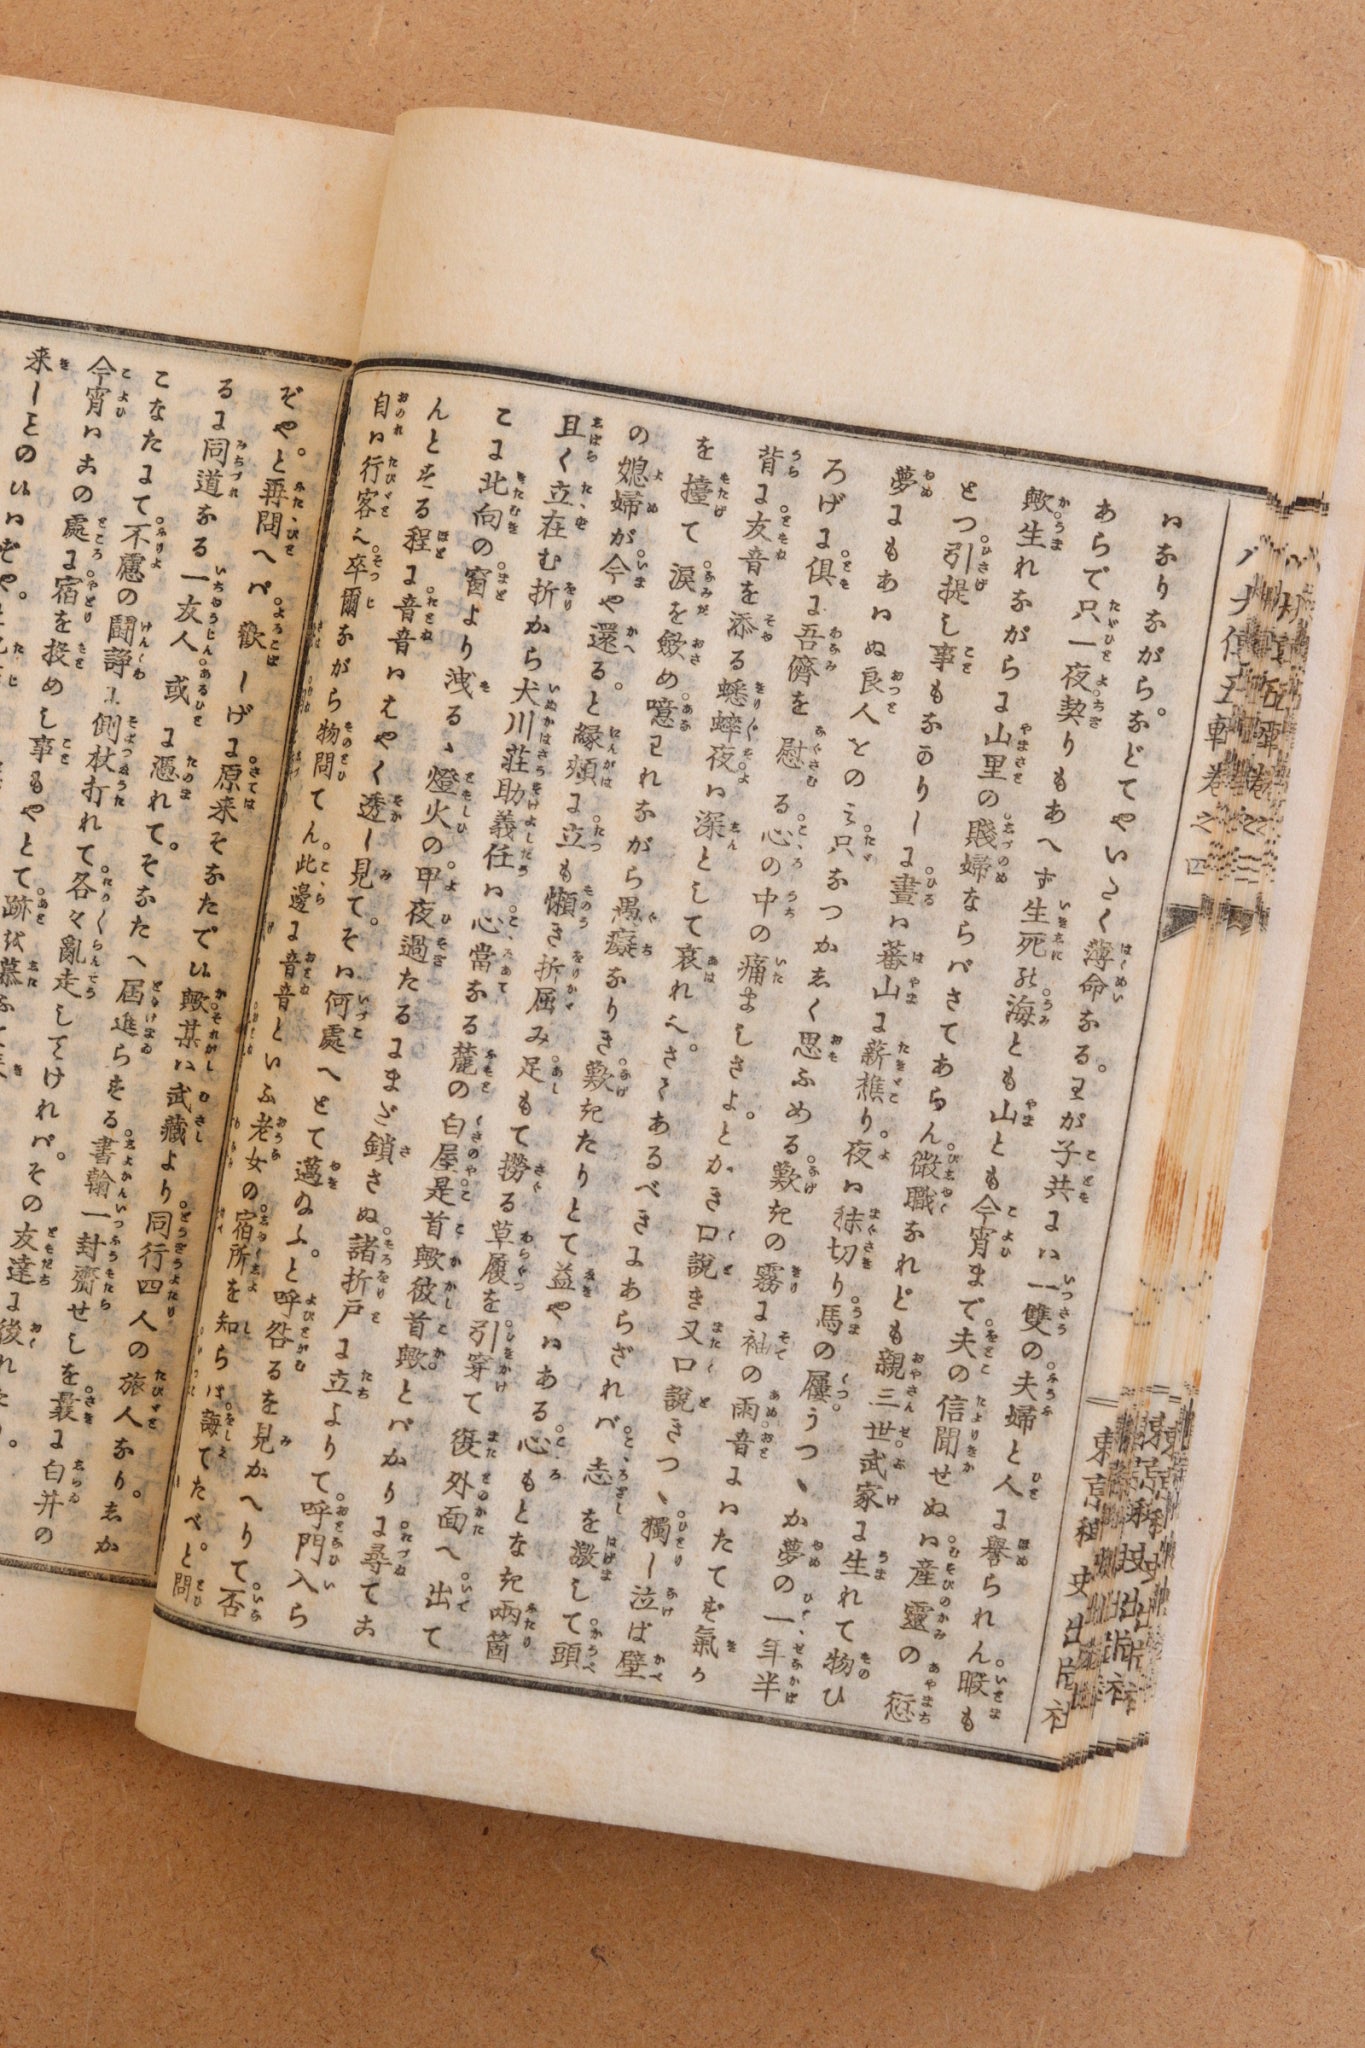 八犬伝五輯巻之四
東京稗史出版社
はなりながら。などてやいたく薄命なる。わが子共には一雙の夫婦と人に譽られん暇も
あらで只一夜契りもあへず生死の海とも山とも今宵まで夫の信聞せぬは産靈の愆
歟生れながらに山里の賤婦ならばさてあらん微職なれども親三世武家に生れて物ひ
とつ引提し事もなかりしに晝は蕃山に薪樵り夜は秣切り馬の屨うつゝか夢の一年半
夢にもあはぬ良人とのみ只なつかしく思ふめる歎きの霧に袖の雨音にはたてず氣か
ろげに倶に吾儕を慰る心の中の痛ましさよ。とかき口説き又口説きつゝ獨し泣ば壁
背に友音を添る蟋蟀夜は深として哀れへ。さてあるべきにあらざれば志を激して頭
を擡て涙を斂め噫われながら愚癡なりき歎きたりとて益やはある心もとなき兩箇
の媳婦が今や還ると縁頬に立も懶き折屈み足もて撈る草履を引穿て復外面へ出て
且く立在む折から犬川荘助義任は心當なる麓の白屋是首歟彼首歟。とばかりに尋てこ
こに北向の窗より洩るゝ燈火の甲夜過たるにまだ鎖さぬ諸折戸に立よりて呼門入ら
んとする程に音音ははやく透し見て。そは何處へとて邁ぬふ。と呼咎るを見かへりて否
自は行客へ卒爾ながら物問てん此邊に音音といふ老女の宿所を知らば誨てたべ。と問
ぞや。と再問へば歡しげに原来そなたでは歟某は武藏より同行四人の旅人なり。しか
るに同道なる一友人或に憑れて。そなたへ届進らする書翰一封齎せしを曩に白井の
こなたにて不慮の鬪諍に側杖打れて各々亂走してければ。その友達に後れ
今宵はこの處に宿を投めし事もやとて跡を慕
来しとのは